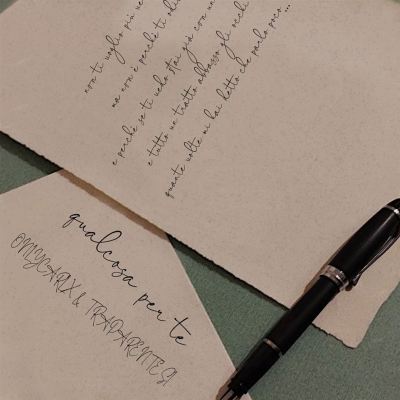 non ti voglio più ve
ma non è perché ti odi
e perché se ti vedo stai già con un
e tutto un tratto abbasso gli occhi
quante volte mi hai detto che parlo poco...
qualcosa per te
ONLYCARLX & TRAPARENTESI